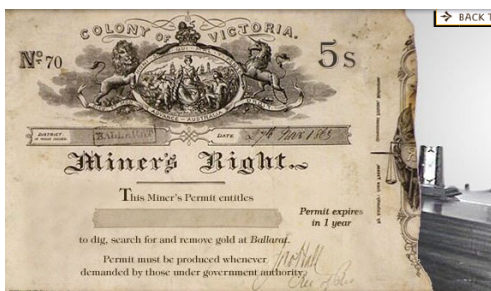 BACK T
COLONY OF VICTORIA.
No 70
5s
ADVANCE AUSTRALIA
DISTRICT
BALLARAT
DATE
27th
1865
Miner's Right.
This Miner's Permit entitles
Permit expires
in 1 year
to dig, search for and remove gold at Ballarat.
Permit must be produced whenever
demanded by those under government authority.